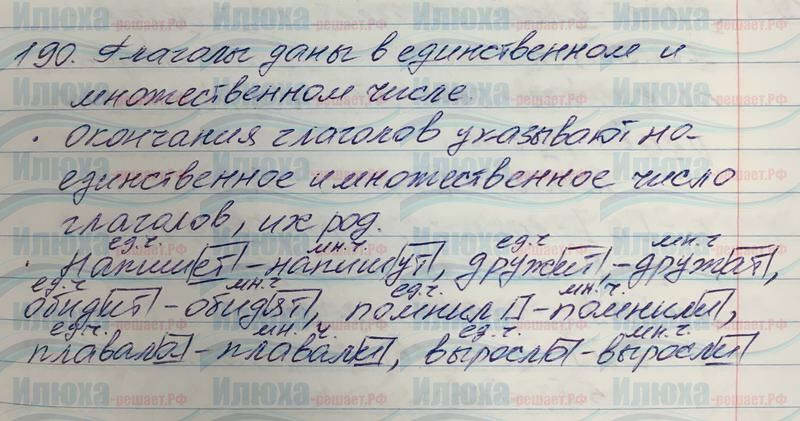 190. Глаголы даны в единственном и
множественном числе.
· Окончания глаголов указывают на
единственное и множественное число
глаголов, их род.
ед.ч. мн.ч. ед.ч мн.ч
· Напишет - напишут, дружит, - дружат,
ед.ч мн.ч ед.ч. мн.ч.
обидит - обидят, помнил - помнили,
ед.ч. мн.ч. ед.ч. мн.ч.
плавала - плавали, выросла - выросли
Илюха-решает.РФ